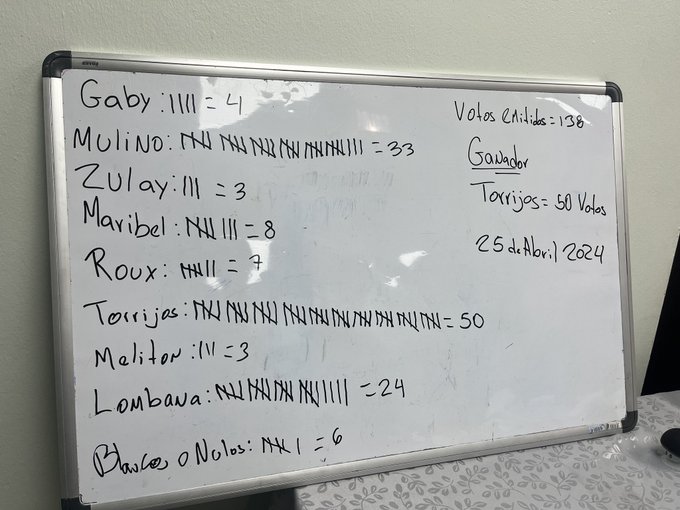 Gaby: |||| = 4
Mulino: 𝍸 𝍸 𝍸 𝍸 𝍸 𝍸 ||| = 33
Zulay: ||| = 3
Maribel: 𝍸 ||| = 8
Roux: 𝍸 || = 7
Torrijos: 𝍸 𝍸 𝍸 𝍸 𝍸 𝍸 𝍸 𝍸 𝍸 𝍸 = 50
Meliton: ||| = 3
Lombana: 𝍸 𝍸 𝍸 𝍸 |||| = 24
Blancos o Nulos: 𝍸 | = 6
Votos emitidos = 138
Ganador
Torrijos = 50 Votos
25 de Abril 2024